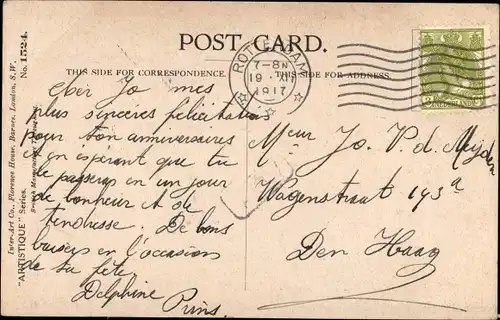 POST CARD.
THIS SIDE FOR CORRESPONDENCE.
THIS SIDE FOR ADDRESS.
ROTTERDAM
7-8N
19
1917
NEDERLAND
Cher Jo mes
plus sincères félicitations
pour ton anniversaire
et en espérant que tu
le passeras en un jour
de bonheur et de
tendresse. De bons
baisers en l'occasion
de ta fête.
Delphine Prins.
Jo. V. d.
Wagenstraat 193a
Den Haag
Inter-Art Co., Florence House, Barnes, London, S.W.
"ARTISTIQUE" Series. No. 1524.
British Manufacture